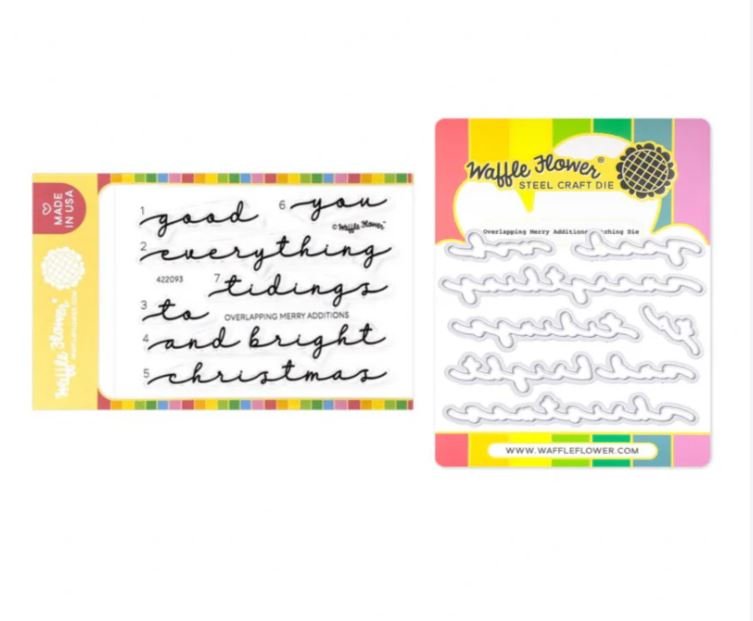 MADE
IN USA
Waffle Flower
1 good
6 you
© Waffle Flower
2 everything
422093
7 tidings
3 to
OVERLAPPING MERRY ADDITIONS
4 and bright
5 christmas
Waffle Flower®
STEEL CRAFT DIE
Overlapping Merry Additions Die
WWW.WAFFLEFLOWER.COM